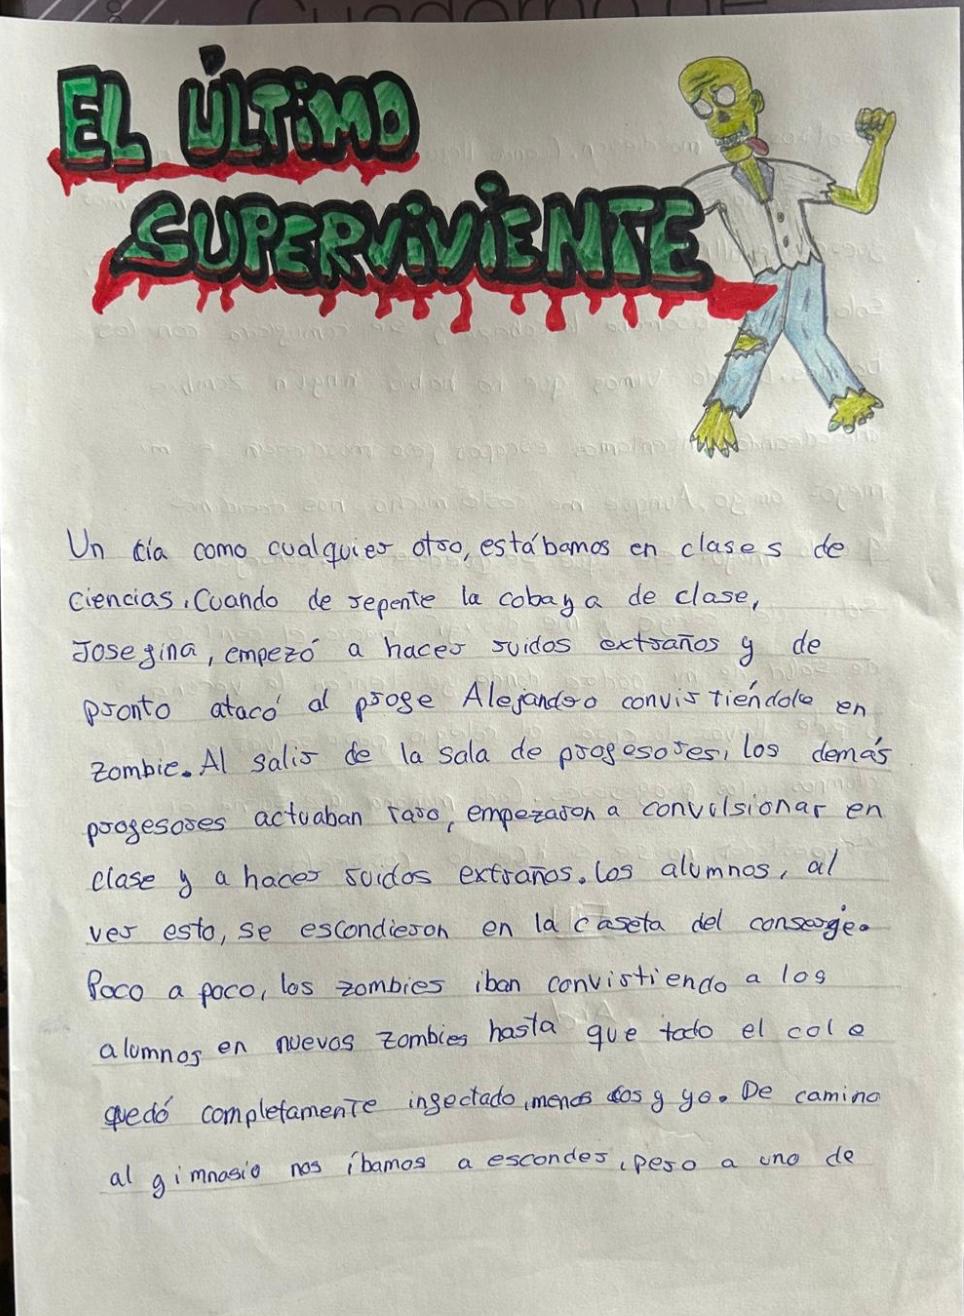 Cuaderno de
EL ÚLTIMO
SUPERVIVIENTE
Un día como cualquier otro, estábamos en clases de
ciencias. Cuando de repente la cobaya de clase,
Josefina, empezó a hacer ruidos extraños y de
pronto atacó al profe Alejandro convirtiéndole en
zombie. Al salir de la sala de profesores, los demás
profesores actuaban raro, empezaron a convulsionar en
clase y a hacer ruidos extraños. Los alumnos, al
ver esto, se escondieron en la caseta del conserge.
Poco a poco, los zombies iban convirtiendo a los
alumnos en nuevos zombies hasta que todo el cole
quedó completamente infectado, menos dos y yo. De camino
al gimnasio nos íbamos a esconder, pero a uno de